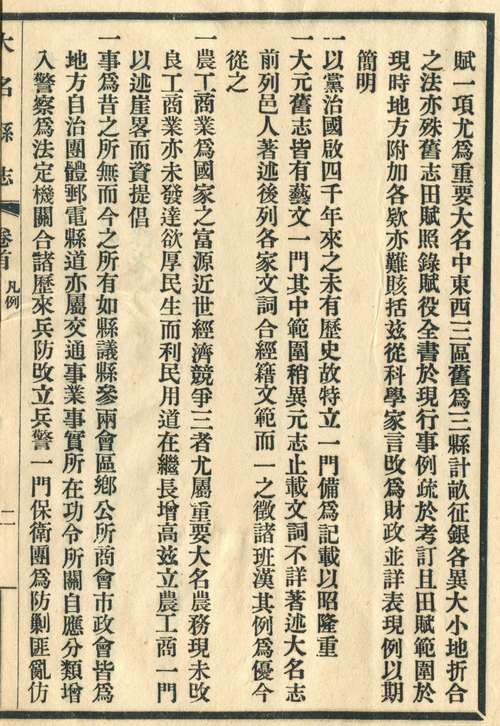 賦一項尤爲重要大名中東西三區舊爲三縣計畝征銀各異大小地折合
之法亦殊舊志田賦照錄賦役全書於現行事例疏於考訂且田賦範圍於
現時地方附加各欵亦難賅括兹從科學家言改爲財政並詳表現例以期
簡明
一以黨治國啟四千年來之未有歷史故特立一門備爲記載以昭隆重
一大元舊志皆有藝文一門其中範圍稍異元志止載文詞不詳著述大名志
前列邑人著述後列各家文詞合經籍文範而一之徵諸班漢其例爲優今
從之
一農工商業爲國家之富源近世經濟競爭三者尤屬重要大名農務現未改
良工商業亦未發達欲厚民生而利民用道在繼長增高兹立農工商一門
以述崖畧而資提倡
一事爲昔之所無而今之所有如縣議縣參兩會區鄉公所商會市政會皆爲
地方自治團體郵電縣道亦屬交通事業事實所在功令所關自應分類增
入警察爲法定機關合諸歷來兵防改立兵警一門保衛團爲防剿匪亂仿
大名縣志
卷首
凡例
二